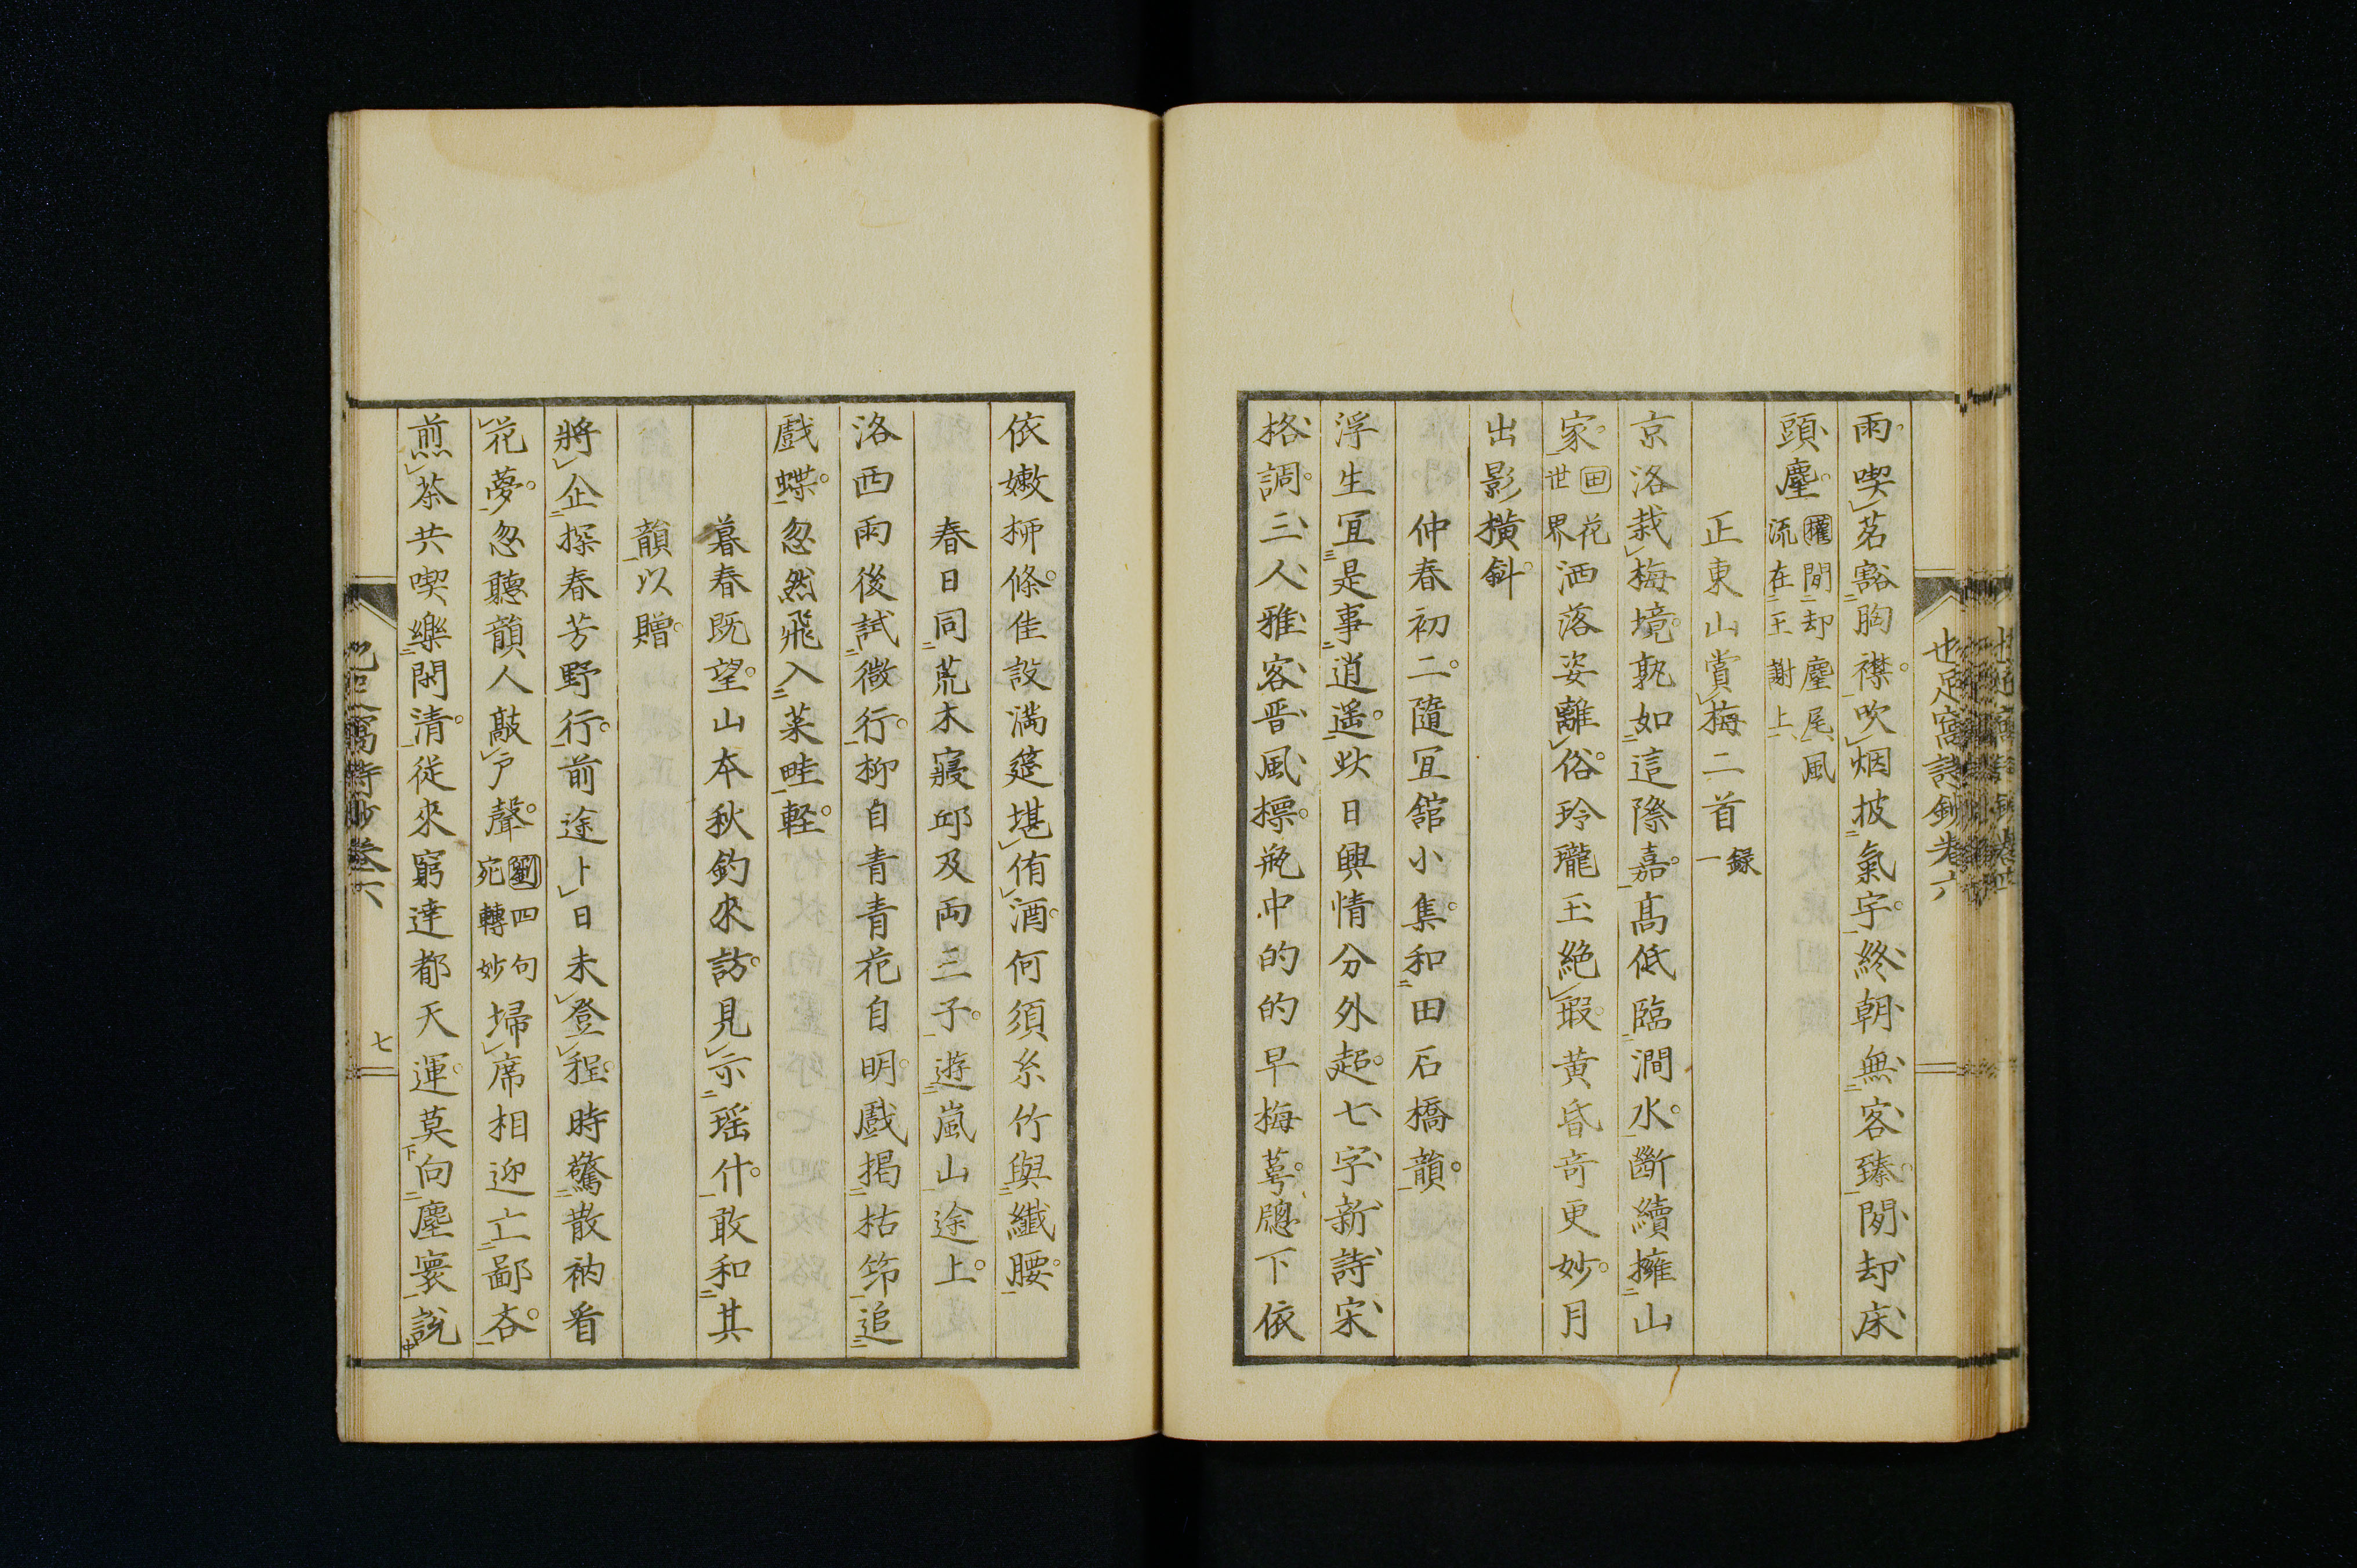 也足窩詩鈔卷六
雨喫茗豁胸襟吹烟披氣宇終朝無客臻閑却床
頭塵權閒却塵尾風流在王謝上
正東山賞梅二首錄一
京洛栽梅境孰如這際嘉高低臨澗水斷續擁山
家田花世界洒落姿離俗玲瓏玉絶瑕黄昏奇更妙月
出影横斜
仲春初二隨冝舘小集和田石橋韻
浮生冝是事逍遥此日興情分外超七字新詩宋
格調三人雅客晋風摽瓶中的的早梅萼牕下依
依嫩柳條佳設満筵堪侑酒何須糸竹與纖腰
春日同荒木寢邱及両三子遊嵐山途上
洛西雨後試微行柳自青青花自明戲掲枯筇追
戲蝶忽然飛入菜畦軽
暮春既望山本秋釣來訪見示瑶什敢和其
韻以贈
將企探春芳野行前途卜日未登程時驚散衲看
花夢忽聽韻人敲戸聲劉四句宛轉妙埽席相迎亡鄙吝
煎茶共喫樂閑清從來窮達都天運莫向塵寰説
七